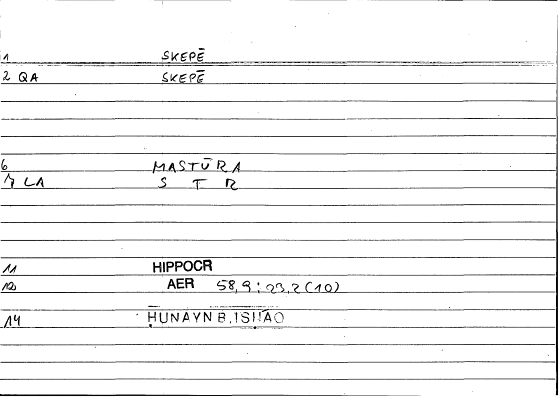 1 SKEPĒ
2 QA SKEPĒ
6 MASTŪRA
7 LA S T R
11 HIPPOCR
12 AER 58,9 ; 23,2 (10)
14 ḤUNAYN B. ISḤĀQ